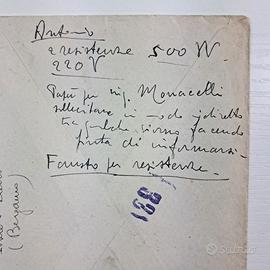 Antonio
2 resistenze 500 W.
220 V
Papà per ing. Monacelli
sollecitare in modo indiretto
tra qualche giorno facendo
finta di informarsi.
Fausto per resistenze.
(Bergamo)
subito